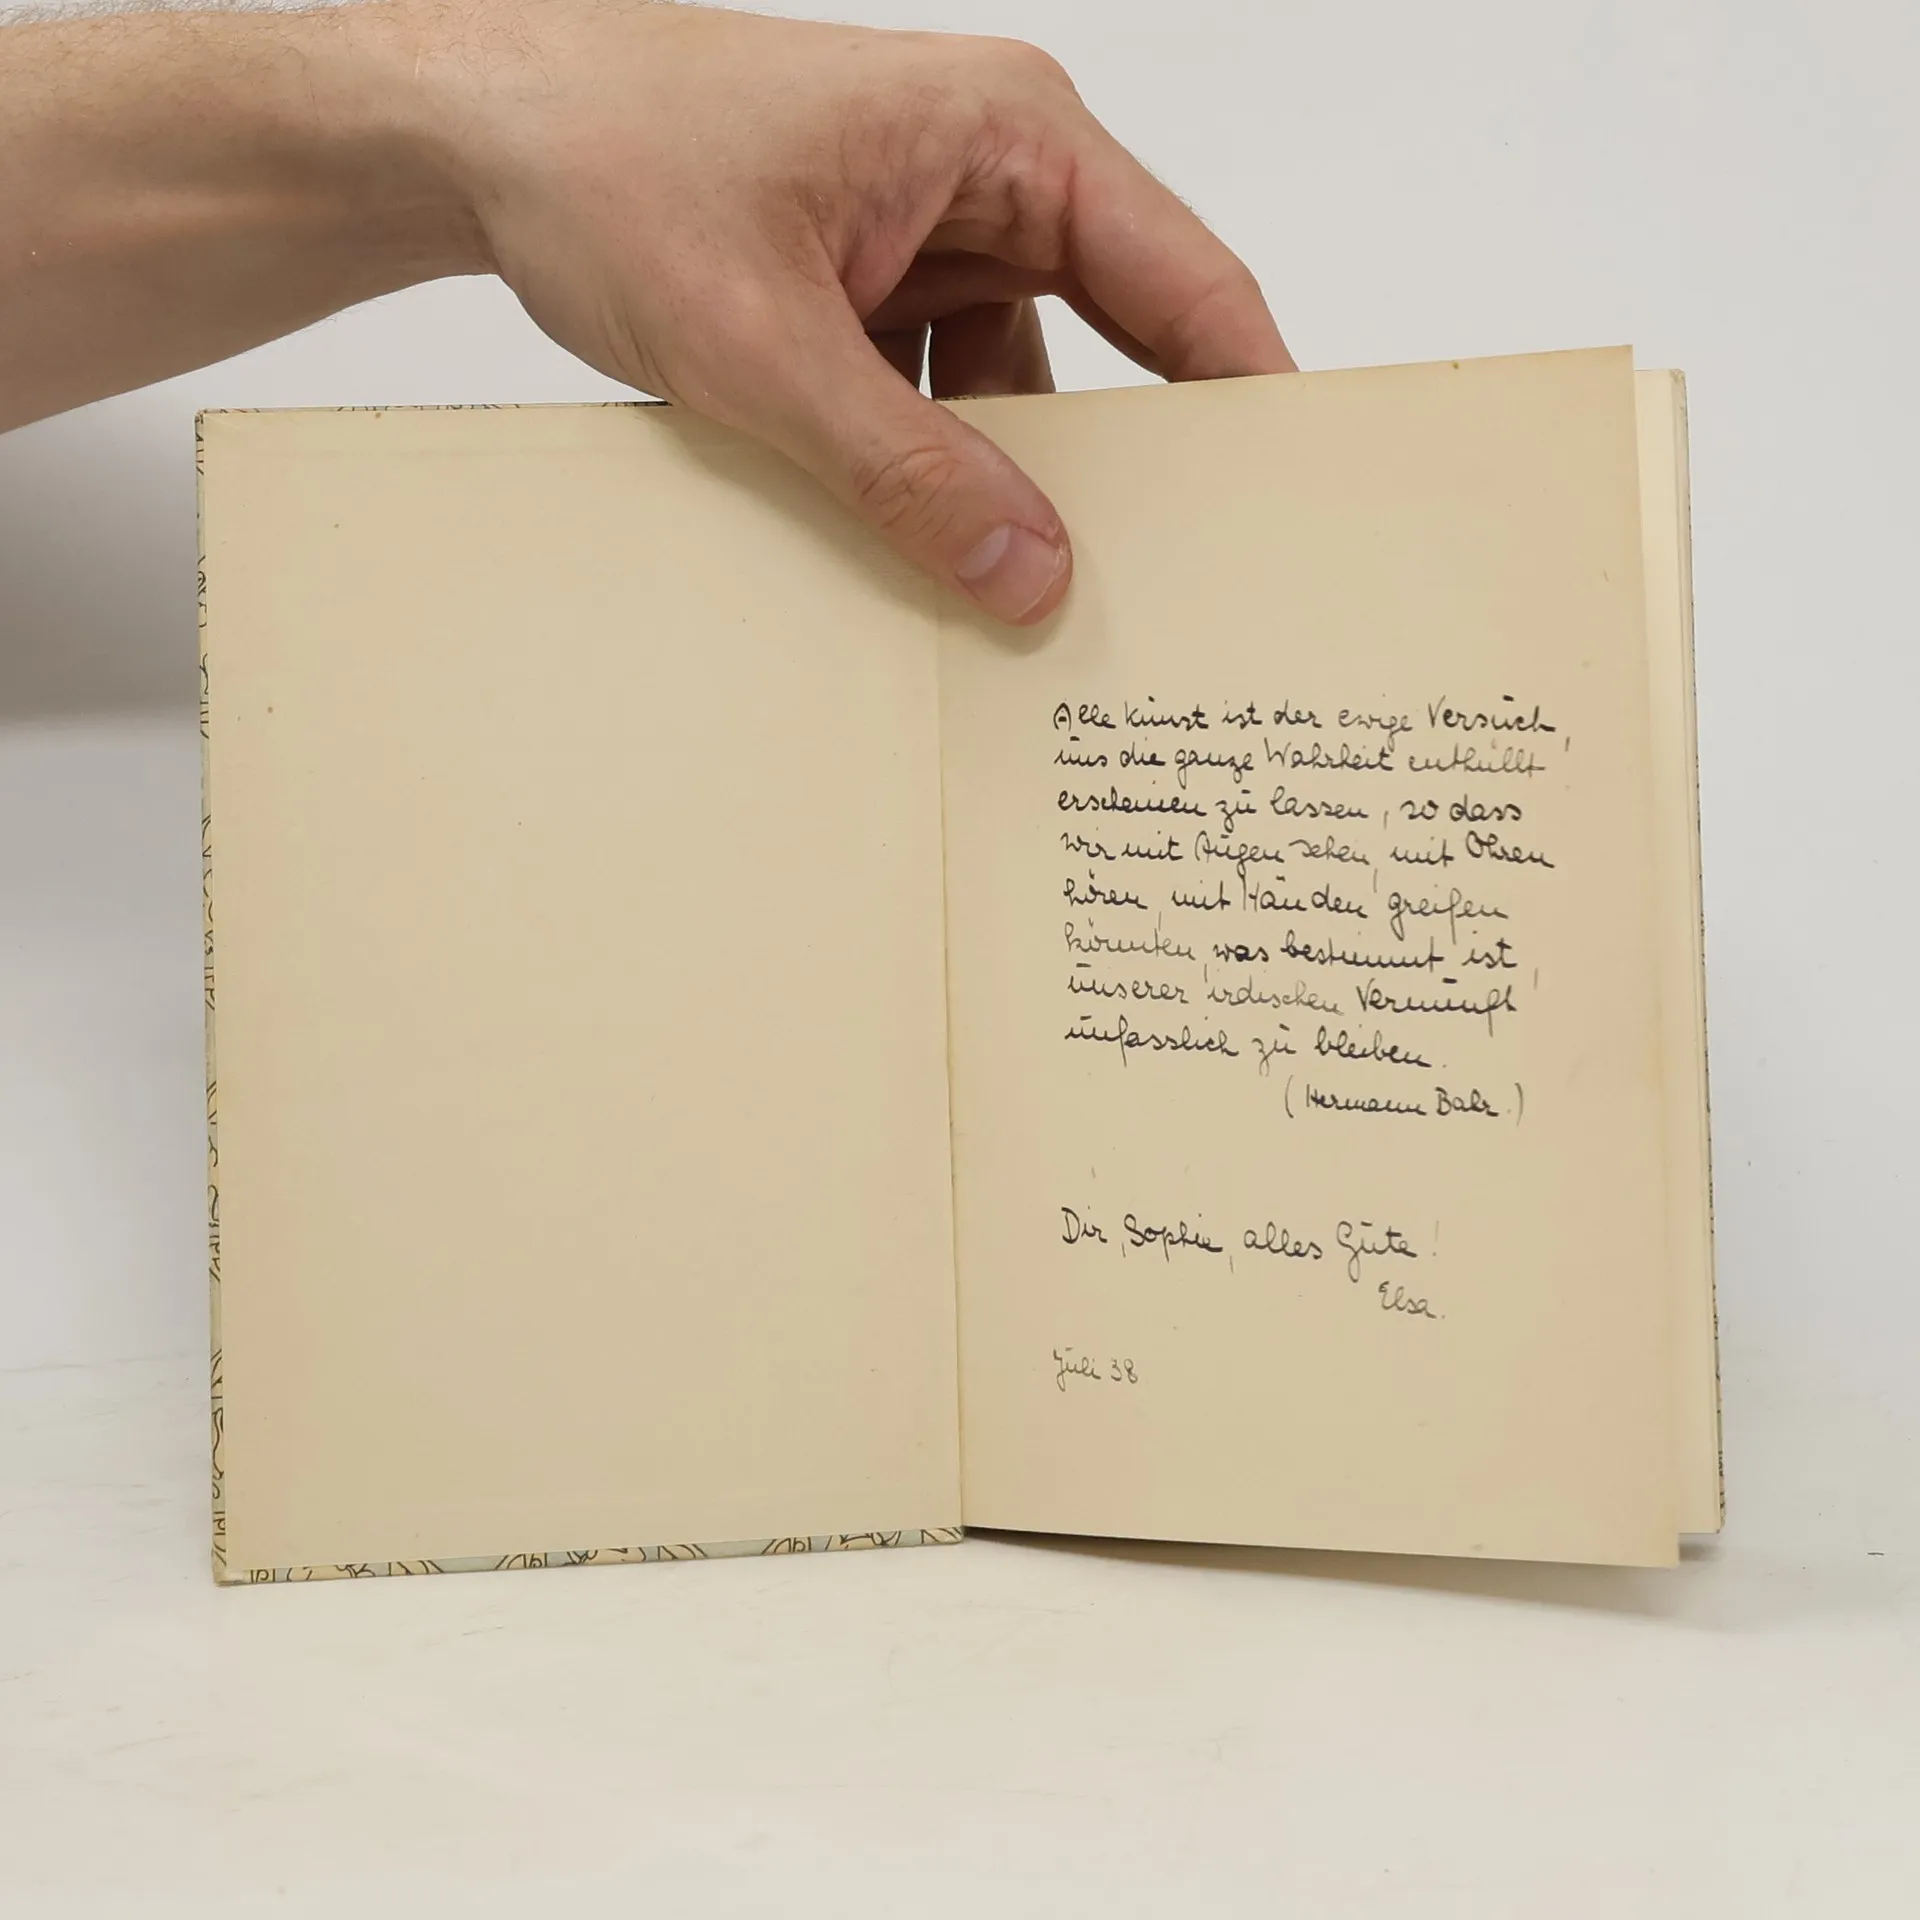 Alle Kunst ist der ewige Versuch,
uns die ganze Wahrheit enthüllt
erscheinen zu lassen, so dass
wir mit Augen sehen, mit Ohren
hören, mit Händen greifen
könnten, was bestimmt ist,
unserer irdischen Vernunft
unfasslich zu bleiben.
(Hermann Bahr.)
Dir, Sophie, alles Gute!
Elsa.
Juli 38